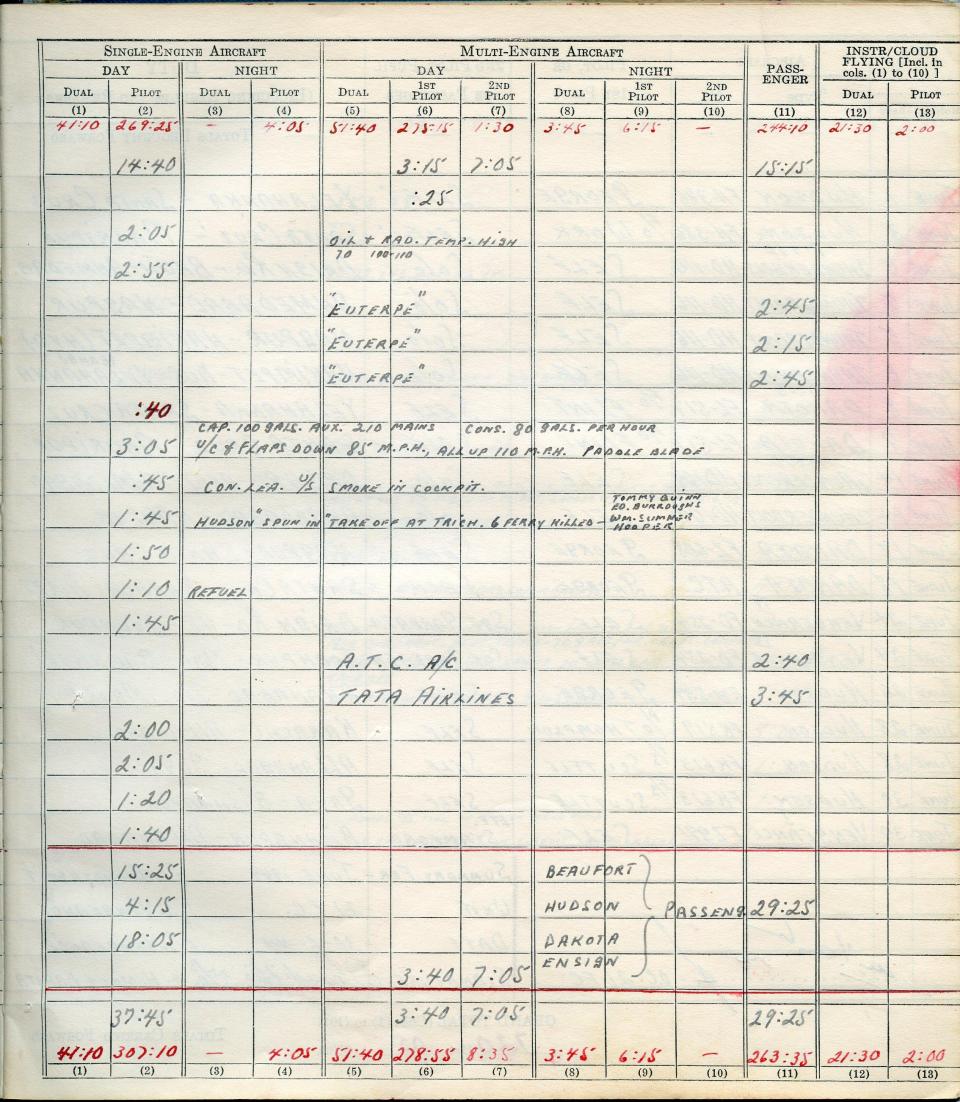 SINGLE-ENGINE AIRCRAFT MULTI-ENGINE AIRCRAFT PASS-ENGER INSTR/CLOUD FLYING [Incl. in cols. (1) to (10) ]
DAY NIGHT DAY NIGHT
DUAL PILOT DUAL PILOT DUAL 1ST PILOT 2ND PILOT DUAL 1ST PILOT 2ND PILOT DUAL PILOT
(1) (2) (3) (4) (5) (6) (7) (8) (9) (10) (11) (12) (13)
41:10 269:25 - 4:05 51:40 275:15 1:30 3:45 6:15 - 244:10 21:30 2:00
14:40 3:15 7:05 15:15
:25
2:05 OIL & RAD. TEMP. HIGH
70 100-110
2:55
"EUTERPE" 2:45
"EUTERPE" 2:15
"EUTERPE" 2:45
:40
CAP. 100 GALS. AUX. 210 MAINS CONS. 80 GALS. PER HOUR
3:05 U/C & FLAPS DOWN 85 M.P.H., ALL UP 110 M.P.H. PADDLE BLADE
:45 CON. LEA. U/S SMOKE IN COCKPIT.
1:45 HUDSON "SPUN IN" TAKE OFF AT TRICH. 6 FERRY KILLED - TOMMY QUINN
ED. BURROUGHS
WM. SUMNER
HOOPER
1:50
1:10 REFUEL
1:45
A.T.C. A/C 2:40
TATA AIRLINES 3:45
2:00
2:05
1:20
1:40
15:25 BEAUFORT
4:15 HUDSON PASSENG. 29:25
18:05 DAKOTA
ENSIGN
3:40 7:05
37:45 3:40 7:05 29:25
41:10 307:10 - 4:05 51:40 278:55 8:35 3:45 6:15 - 263:35 21:30 2:00
(1) (2) (3) (4) (5) (6) (7) (8) (9) (10) (11) (12) (13)